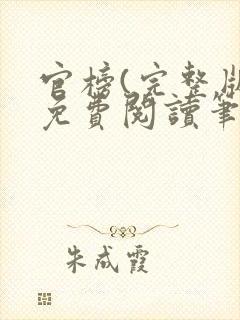 官榜(完整版
免費閱讀筆
朱成霞